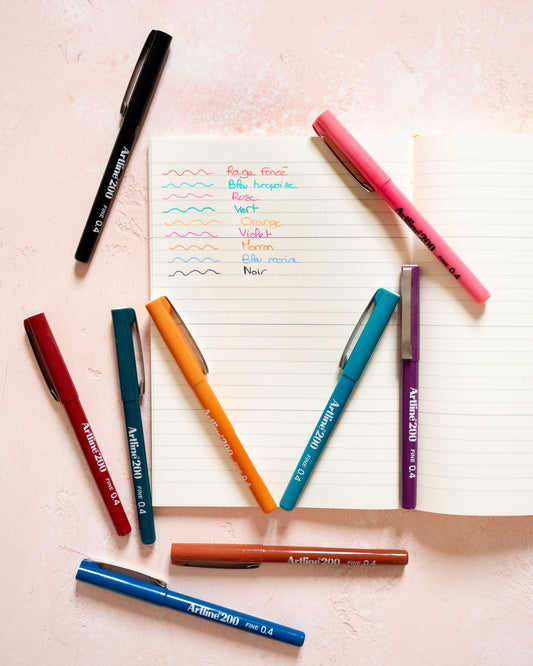 Artline 200 FINE 0.4
Rouge foncé
Bleu turquoise
Rose
Vert
Orange
Violet
Marron
Bleu marine
Noir
Artline 200 FINE 0.4
Artline 200 FINE 0.4
Artline 200 FINE 0.4
Artline 200 FINE 0.4
Artline 200 FINE 0.4
Artline 200 FINE 0.4
Artline 200 FINE 0.4
Artline 200 FINE 0.4